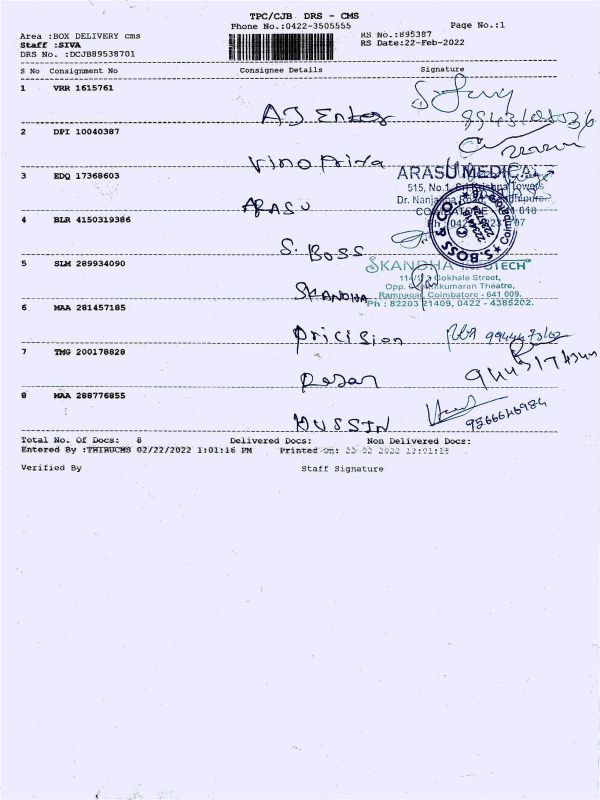 TPC/CJB DRS - CMS
Phone No.:0422-3505555 Page No.:1
Area :BOX DELIVERY cms RS No.:895387
Staff :SIVA RS Date:22-Feb-2022
DRS No. :DCJB89538701
S No Consignment No Consignee Details Signature
1 VRR 1615761
AJ Enter
2 DPI 10040387
Vino Priya
3 EDQ 17368603
ARASU MEDICAL
515, No.1, Sri Krishna Towers
Dr. Nanjappa Road,
ARASU
4 BLR 4150319386
S. BOSS & CO.
Coimbatore
S. BOSS
5 SLM 289934090
SKANDHA INFOTECH
Gokhale Street,
Opp. Theatre,
Ramnagar, Coimbatore - 641 009.
Ph : 82203 21409, 0422 - 4385202.
SKANDHA
6 MAA 281457185
Pricision
7 TMG 200178828
8 MAA 288776855
9566646984
HUSSIN
Total No. Of Docs: 8 Delivered Docs: Non Delivered Docs:
Entered By :THIRUCMS 02/22/2022 1:01:16 PM Printed On: 22 02 2022 13:01:18
Verified By Staff Signature